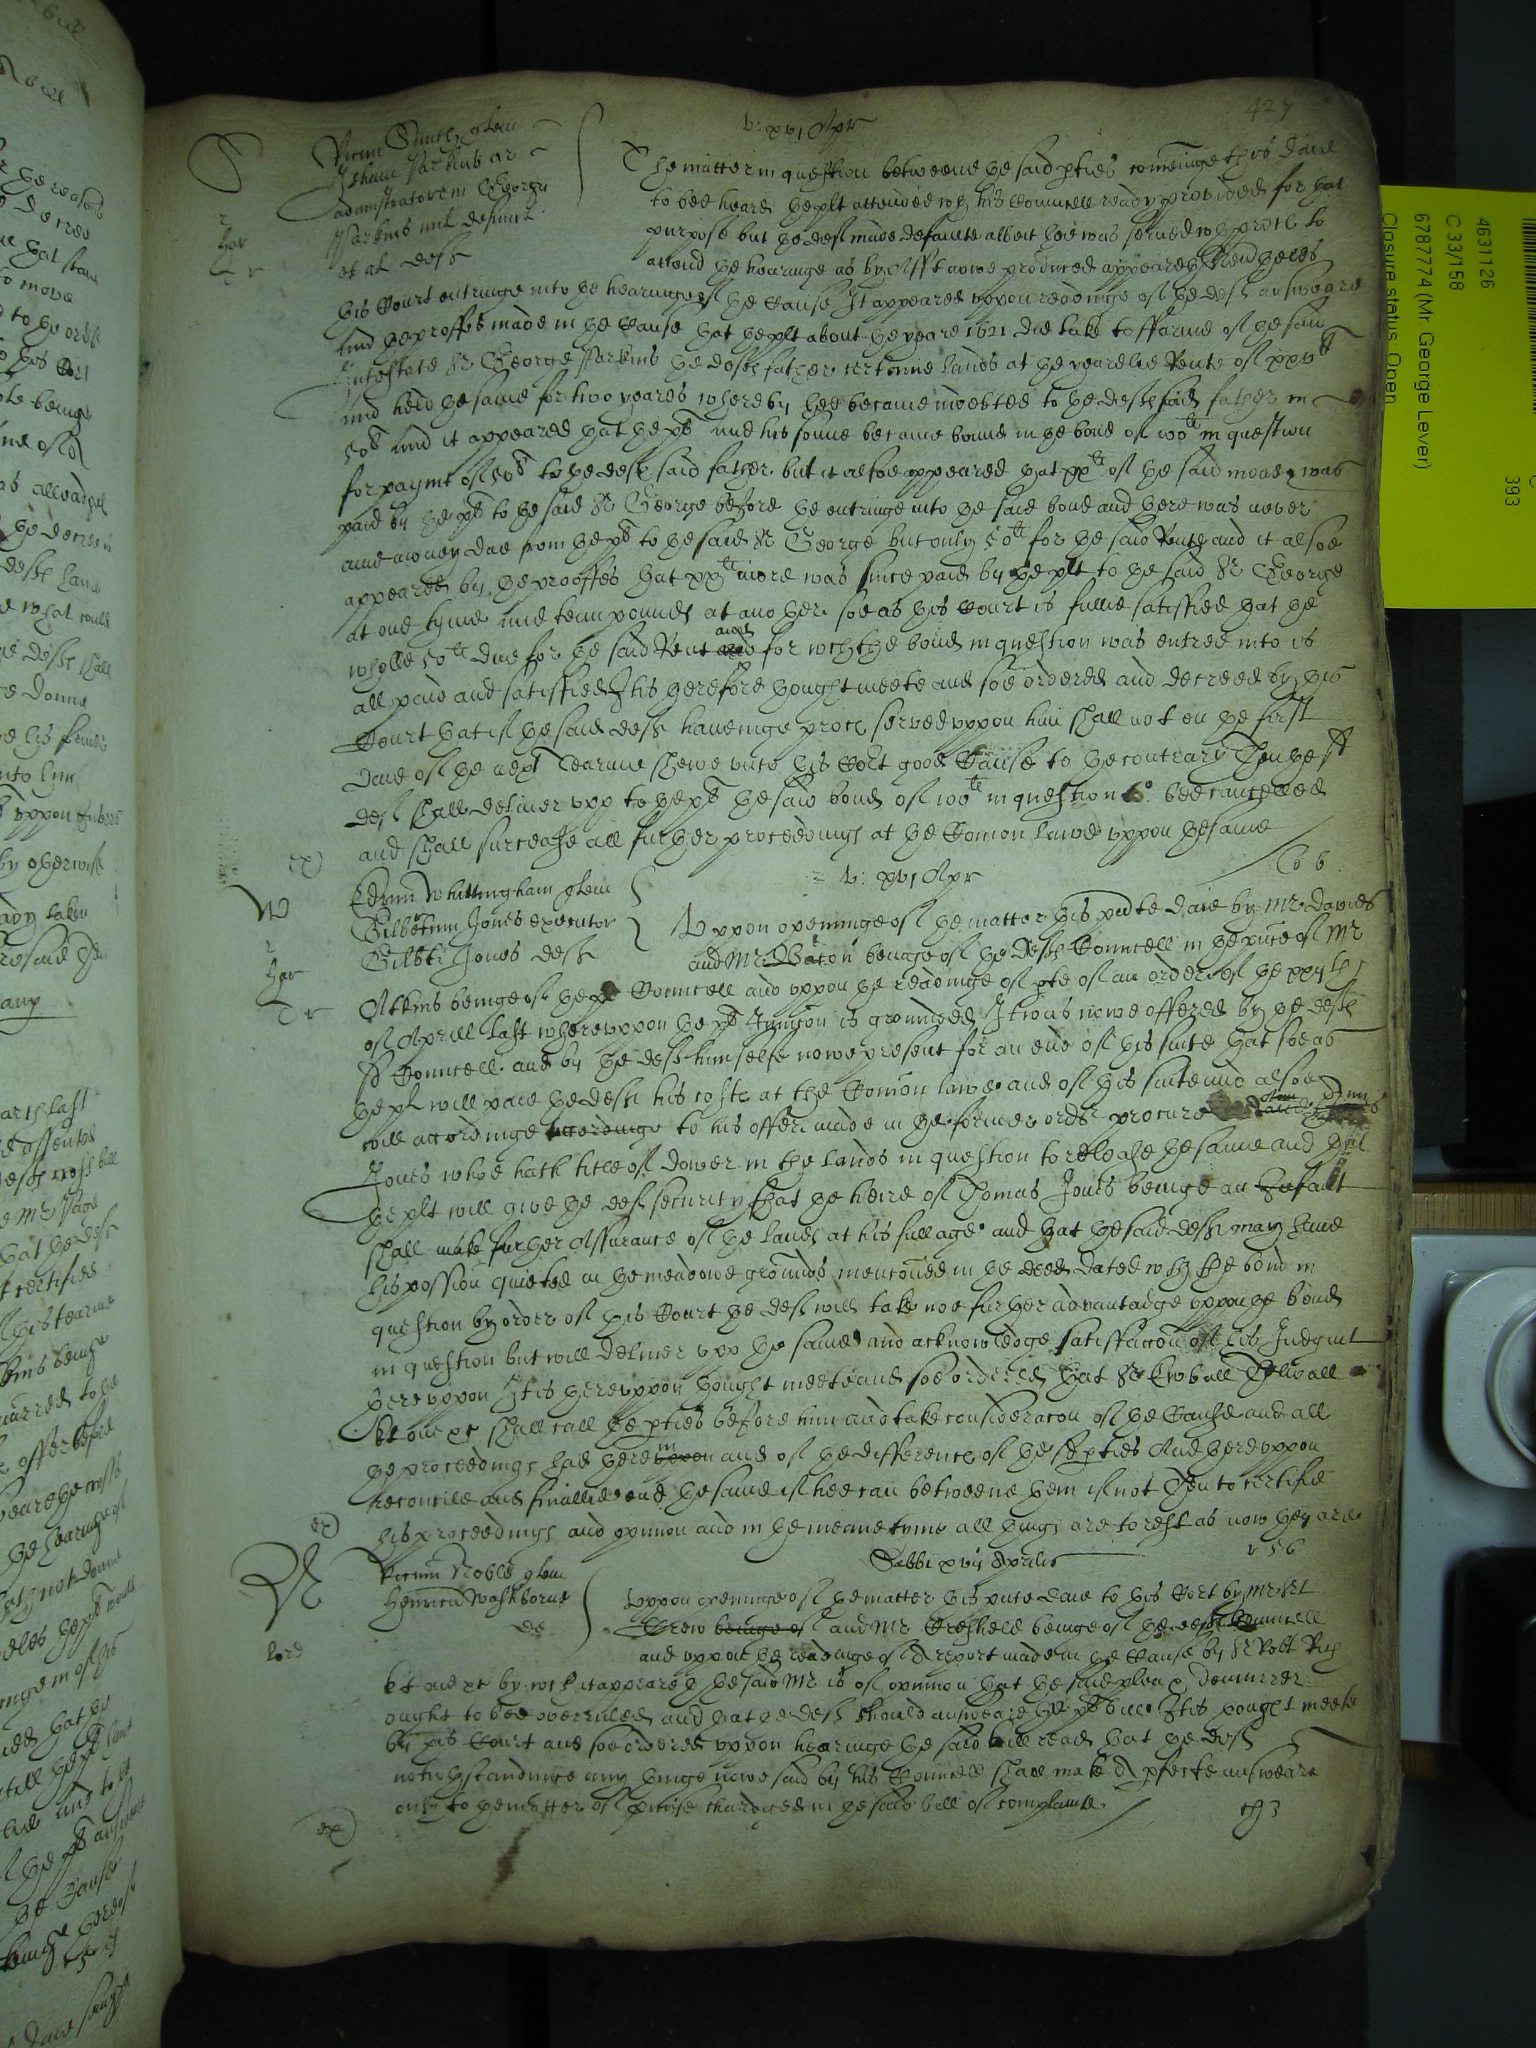 427
v: xvj Apr
S
quer
Johem Parkins ar
administratorem Georgii
Parkins mil defunct
et al def
The matter in question betweene the said pties cominge this daie
to bee heard the plt attended wth his Councell ready provided for that
purpose but the deft made defaulte albeit hee was served wth proces to
attend the hearinge as by Afft nowe produced appeareth And theruppon
this Court entringe into the hearinge of the Cause It appeared uppon readinge of the defts answeare
and the proffes made in the Cause that the plt about the yeare 1621 did take to ffarme of the said
Intestate Sr George Parkins the defts father certeine lands at the yearelie Rente of xxvli
And held the same for two yeares whereby hee became indebted to the defts said father in
50li And it appeared that the plt and his sonne became bound in the bond of 100li in question
for paymt of 50li to the defts said father but it alsoe appeared that xxli of the said money was
paid by the plt to the said Sr George before the entringe into the said bond and there was never
anie money due from the plt to the said Sr George but only 50li for the said Rente and it alsoe
appeared by the prooffes that xxli more was since paid by the plt to the said Sr George
at one tyme and tenn pounds at another soe as this Court is fullie satisfied that the
wholle 50li due for the said Rent and for wch the bond in question was entred into is
all paid and satisfied It is therefore thought meete and soe ordered and decreed by this
Court that if the said deft haveinge proces served uppon him shall not on the first
daie of the next Tearme shewe unto this Cort good Cause to the contrary Then the sd
deft shall deliver upp to the plt the said bond of 100li in question to bee cancelled
and shall surcease all further proceedings at the Comon lawe uppon the same
ex)
v: xvj Apr
W
Edrum Whittingham quer
Gilbertum Jones executor
Gilbti Jones deft
Uppon openinge of the matter this pnte daie by Mr Davies
and Mr Bacon beinge of the defts Councell in the pnce of Mr
Atkins beinge of the plts Councell and uppon the readinge of pte of an order of the
of Aprill last whereuppon the plts Iunccon is grounded It was nowe offered by the defts
sd Councell and by the deft himselfe nowe present for an end of this suite that soe as
the plt will paie the deft his costs at the Comon lawe and of this suite and alsoe
will accordinge accordinge to his offer made in the former order procure
Jones whoe hath title of dower in the lands in question to release the same and that
the plt will give the deft security that the heire of Thomas Jones beinge an Infant
shall make further Assurance of the lands at his full age and that the said deft may have
his possion quieted in the meadowe grounds mencioned in the deed dated wth the bond in
question by order of this Court the deft will take noe further advantadge uppon the bond
in question but will deliver upp the same and acknowledge satisfaccon of his Judgmt
thereuppon It is thereuppon thought meete and soe ordered that Sr Euball Thelwall
kt one &c shall call the pties before him and take consideracon of the Cause and all
the proceedings had therein uppon and of the differences of the sd pties And thereuppon
reconcile and finallie end the same if hee can betweene them if not Then to certifie
his proceedings and opinion and in the meane tyme all things are to rest as now they are
ex)
Sabbi xvij Aprilis
R
Noble quer
Henricu Washborne
de
lord
Uppon openinge of the matter this pnte daie to this Cort by Mr
Crew beinge of and Mr beinge of the defts Councell
and uppon the readinge of A report made in the Cause by Sr Robt Rich
kt one &c by wch it appeareth the said Mr is of opinion that the said plea & demurrer
ought to bee overruled and that the deft should answeare the plts bill It is thought meete
by this Court and soe ordered uppon hearinge the said bill read that the deft
notwthstandinge any thinge nowe said by his Councell shall make A pfecte answeare
only to the matter of promise chardged in the said bill of complainte
ex)
4631126
C 33/158
6787774 (Mr. George Lever)
Closure status: Open
393